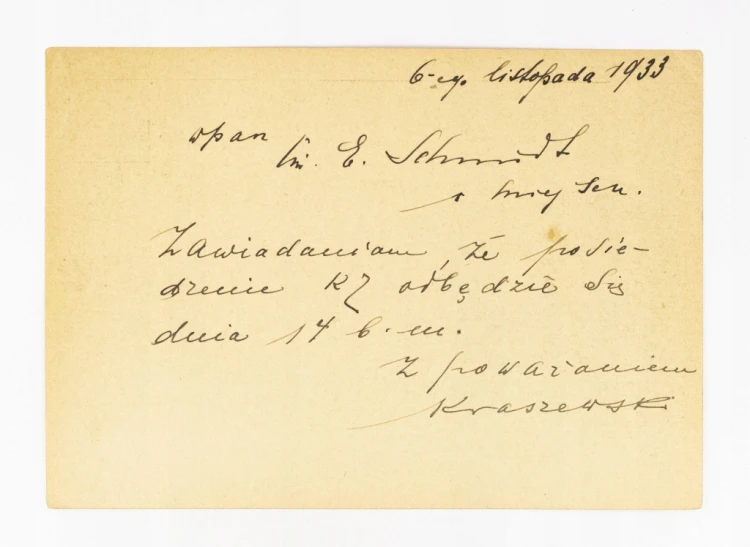 6-ego listopada 1933
WPan
E. Schmidt
w miejscu.
Zawiadamiam, że posie-
dzenie KZ odbędzie się
dnia 14 b.m.
Z poważaniem
Kraszewski